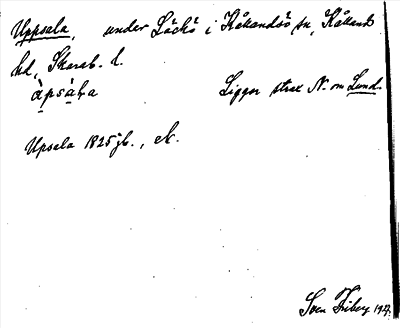 Uppsala, under Läckö i Kållandsö sn, Kålland
hd, Skarab. l.
àpsàḷa Ligger strax N. om Lund.
Upsala 1825 jb., M.
Sven Friberg 1927.